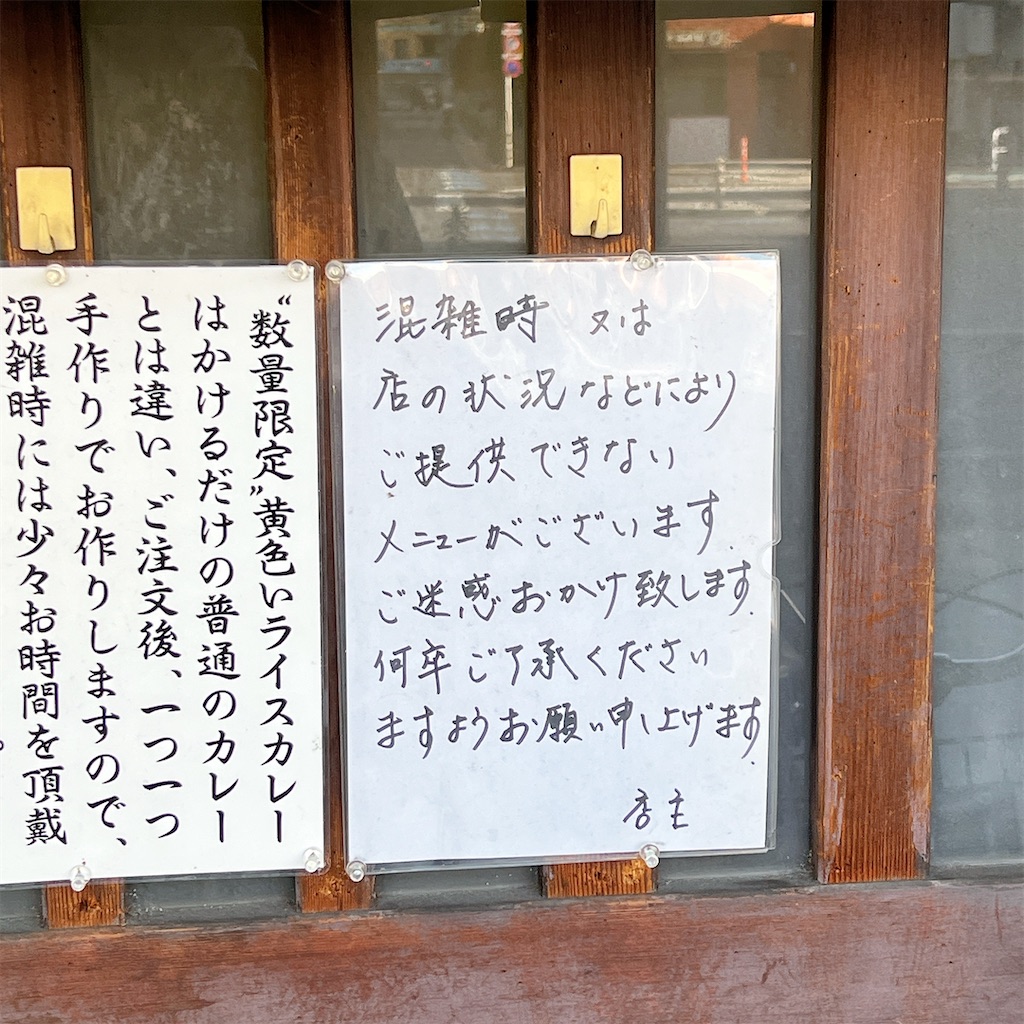 “数量限定”黄色いライスカレー
はかけるだけの普通のカレー
とは違い、ご注文後、一つ一つ
手作りでお作りしますので、
混雑時には少々お時間を頂戴
混雑時 又は
店の状況などにより
ご提供できない
メニューがございます.
ご迷惑おかけ致します.
何卒ご了承ください
ますようお願い申し上げます.
店主